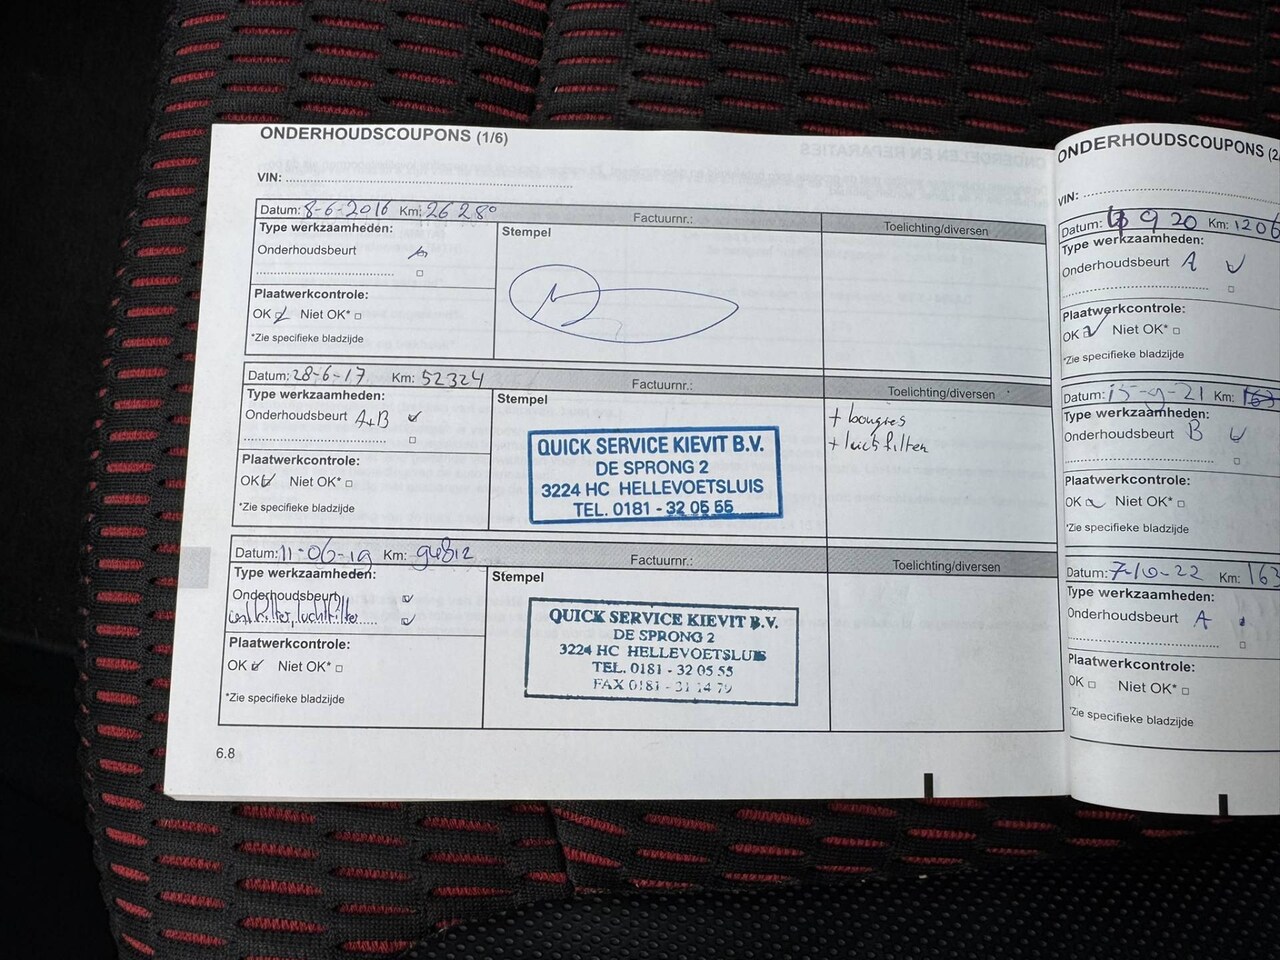 ONDERHOUDSCOUPONS (1/6)
VIN:
Datum: 8-6-2016 Km: 26280 Factuurnr.: Toelichting/diversen
Type werkzaamheden:
Stempel
Onderhoudsbeurt
Plaatwerkcontrole:
OK Niet OK*
*Zie specifieke bladzijde
Datum: 28-6-17 Km: 52324 Factuurnr.: Toelichting/diversen
Type werkzaamheden:
Stempel
Onderhoudsbeurt A+B
+ bougies
+ luchtfilter
Plaatwerkcontrole:
OK Niet OK*
*Zie specifieke bladzijde
QUICK SERVICE KIEVIT B.V.
DE SPRONG 2
3224 HC HELLEVOETSLUIS
TEL. 0181 - 32 05 55
Datum: 11-06-19 Km: 94812 Factuurnr.: Toelichting/diversen
Type werkzaamheden:
Stempel
Onderhoudsbeurt
luchtfilter
Plaatwerkcontrole:
OK Niet OK*
*Zie specifieke bladzijde
QUICK SERVICE KIEVIT B.V.
DE SPRONG 2
3224 HC HELLEVOETSLUIS
TEL. 0181 - 32 05 55
FAX 0181 - 31 14 79
6.8
ONDERHOUDSCOUPONS (2
VIN:
Datum: 9 20 Km: 1206
Type werkzaamheden:
Onderhoudsbeurt A
Plaatwerkcontrole:
OK Niet OK*
*Zie specifieke bladzijde
Datum: 15-9-21 Km:
Type werkzaamheden:
Onderhoudsbeurt B
Plaatwerkcontrole:
OK Niet OK*
*Zie specifieke bladzijde
Datum: 7-10-22 Km: 162
Type werkzaamheden:
Onderhoudsbeurt A
Plaatwerkcontrole:
OK Niet OK*
*Zie specifieke bladzijde